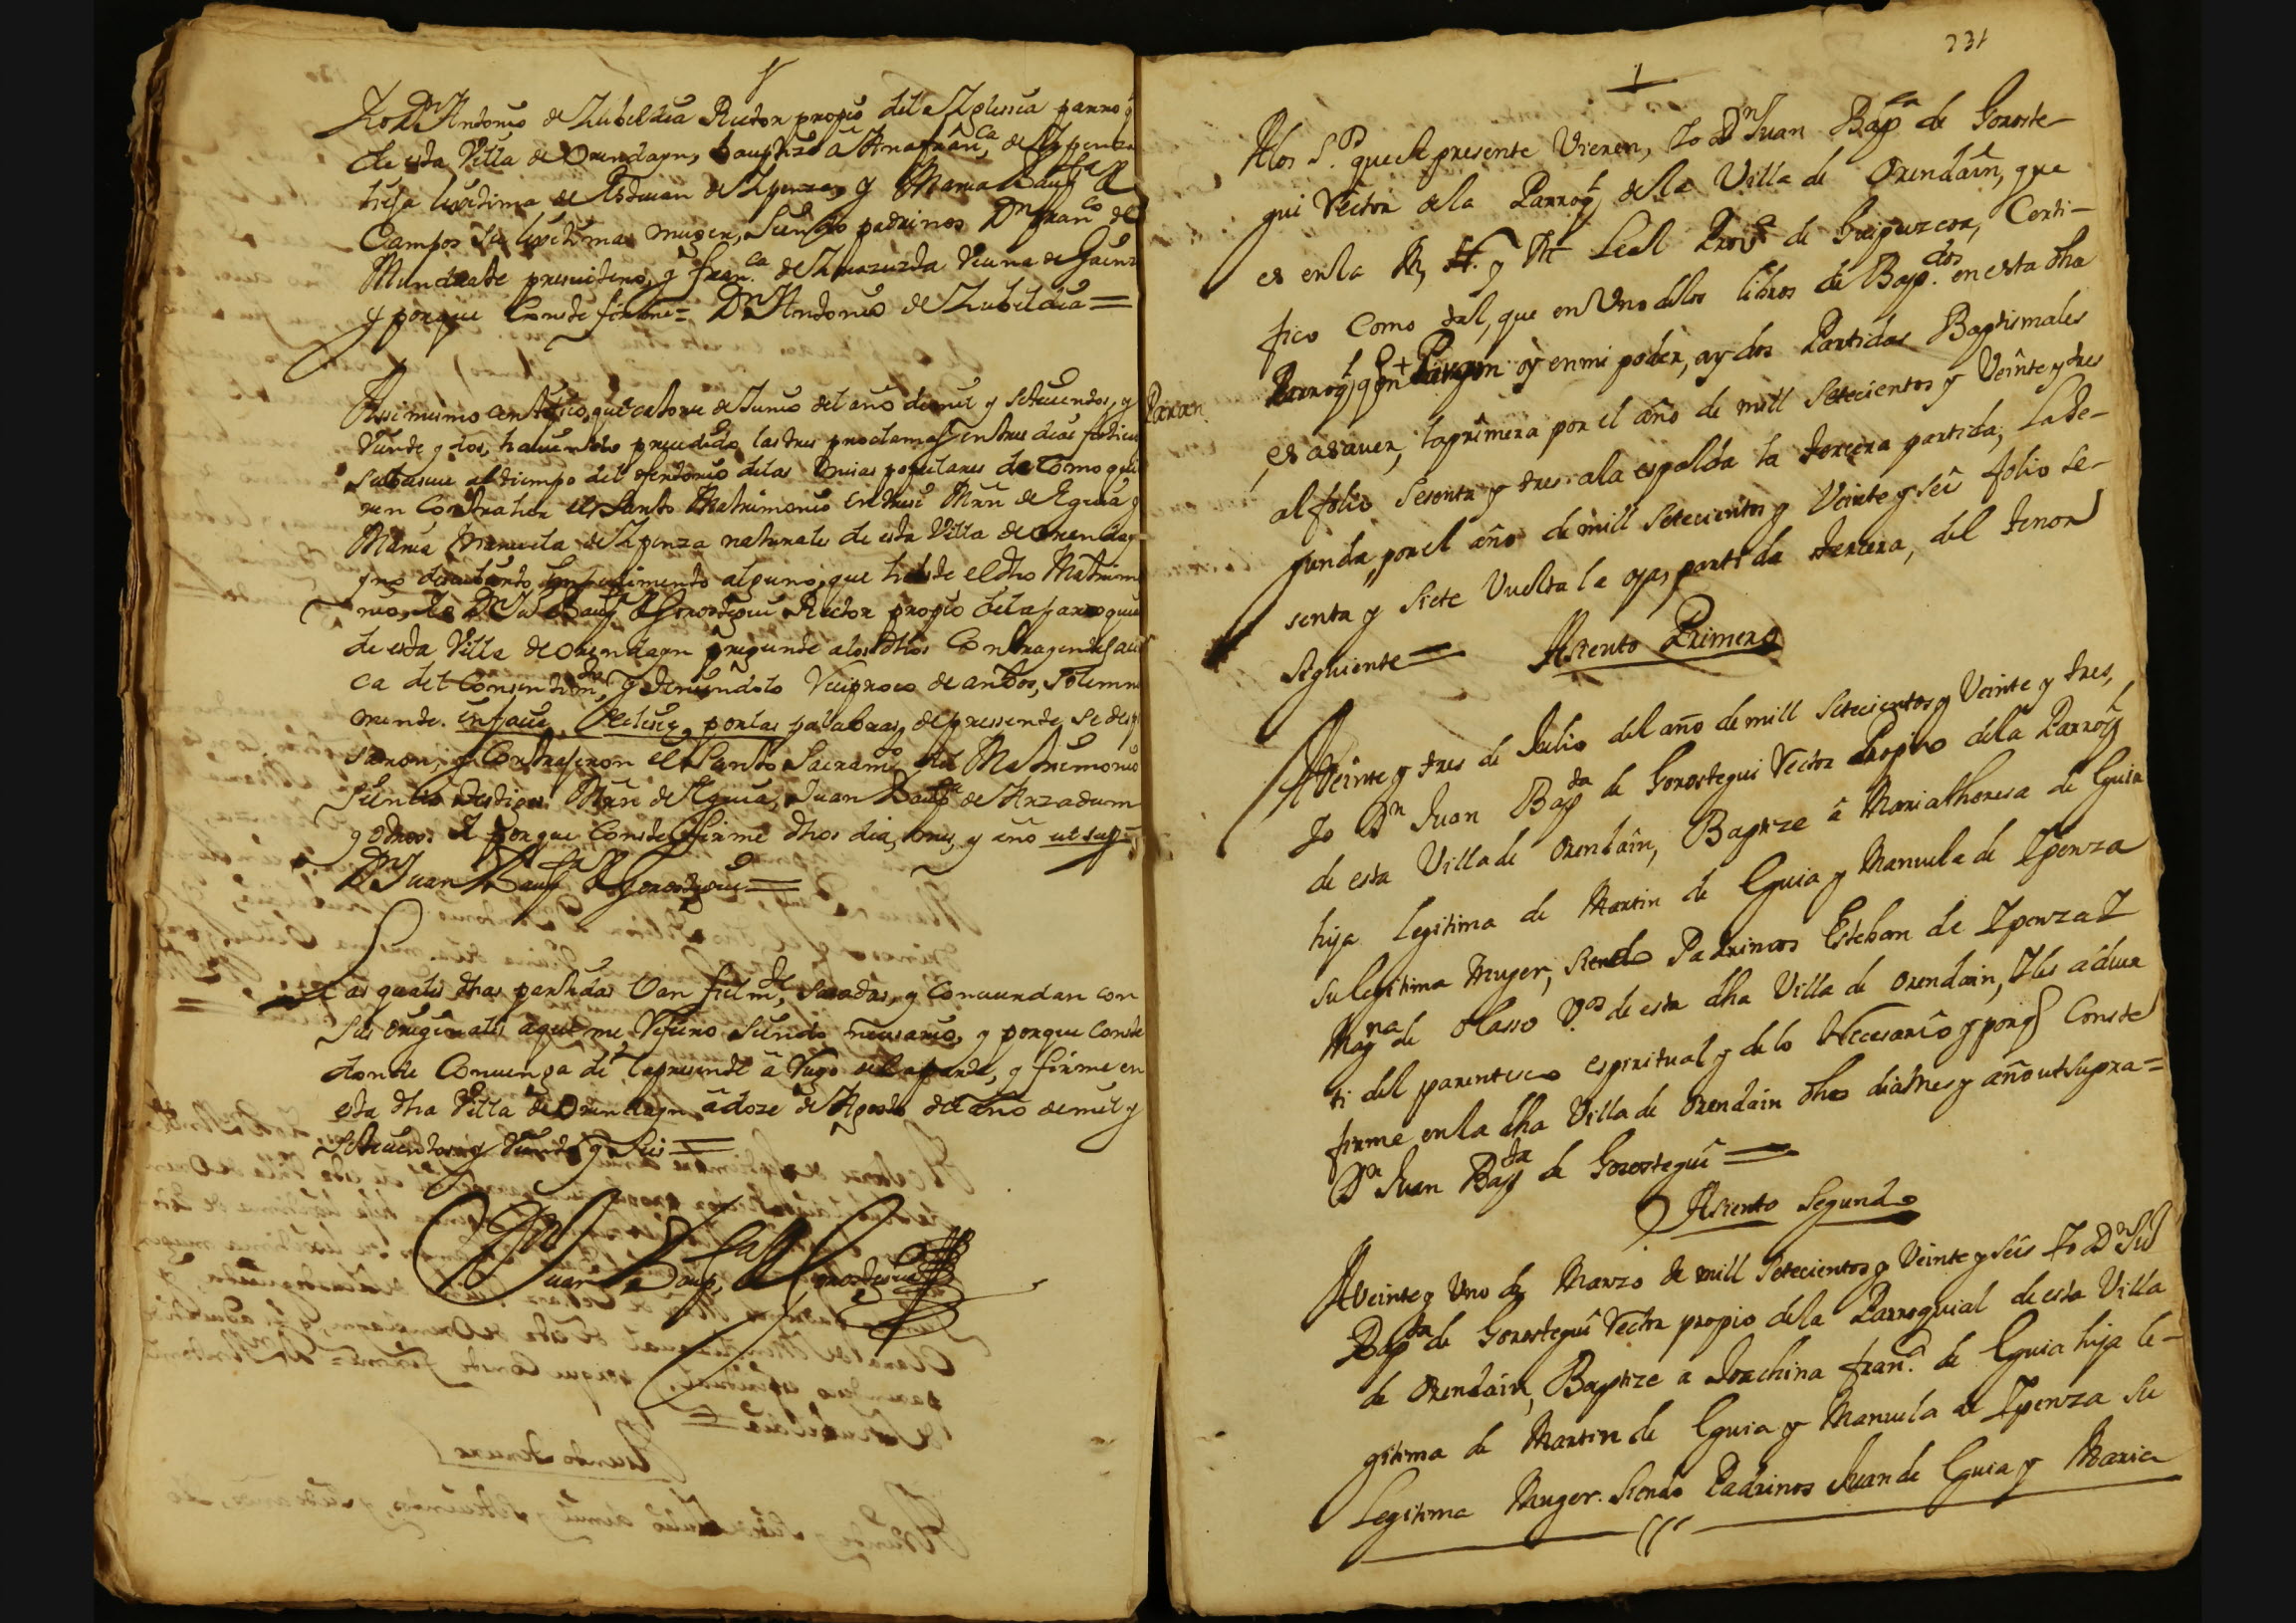 Yo Dn Antonio de Zubeldia Rector propio dela Iglessia parroq
de esta Villa de Orendayn, bauptize â Ana franca de Ypenza
hija lexitima de Esteuan de Ypenza, y Maria Baupta de
Campos su lexitima muger, siendo padrinos Dn franco de
Munduate presuitero, y franca de Vecina de Gainza
y porque Conste firme = Dn Antonio de Zubeldia =
Assi mismo certifico, que catorze de Junio del año de mil y setecientos, y
Veinte y dos, hauiendo precedido las tres proclamas en tres dias festiuos
al tiempo del ofertorio delas misas populares de como quie
ren Contraher el Santo Matrimonio entre si Mrn de Eguia y
Maria Manuela de Ypenza naturales de esta Villa de Orendayn
y no descubierto Impedimento alguno, que heste el dho Matrimo
nio, Yo Dn Jn Baupta de Gorostegui Rector propio dela parroquia
de esta Villa de Orendayn pregunte alos dhos Contrayentes acer
ca del Consentimto, y teniendolo Reciproco de ambos, Solemne
mente. in facie Eclesie, por las palabras, de pressente se despo
saron, y Contrajeron el Santo Sacramto del Matrimonio
Siendo testigos Mrn de Eguia, Juan Baupta de Anzadum
y otros. Y porque Conste firme dhos dia, mes, y año ut sup =
Dn Juan Baupta de Gorostegui =
Las quales dhas partidas Van fielmte, sacadas, y Concuerdan con
sus originales aque me Refiero siendo nesesario, y porque Conste
donde Conuenga di la presente â Ruego dela parte, y firme en
esta dha Villa de Orendayn â doze de Agosto del año de mil y
Setecientos y Veinte y seis =
Dn Juan Baupta de Gorostegui
231
Alos S.P. que el presente Vieren, Yo Dn Juan Bapta de Goroste-
gui Rector de la Parroql de la Villa de Orendain, que
es en la M, N. y M Leal Prova de Guipuzcoa, Certi-
fico Como tal, que en Uno delos libros de Bapdos en esta dha
Paran.
Parroql, q en + Paran oy en mi poder, ay dos Partidas Baptismales
es a sauer, la primera por el año de mill Setecientos y Veinte y tres
al folio Sesenta y tres a la espalda la tercera partida, la se-
gunda, por el año de mill Setecientos y Veinte y seis folio se-
senta y siete Vuelta la oja, partida tercera, del tenor
siguiente = Asiento Primero
A Veinte y tres de Julio del año de mill Setecientos y Veinte y tres,
Yo Dn Juan Bapta de Gorostegui Rector Propio dela Parroql
de esta Villa de Orendain, Baptize â Maria theresa de Eguia
hija Legitima de Martin de Eguia y Manuela de Ypenza
su legitima Muger, siendo Padrinos Esteban de Ypenza Y
Magna de Olasso Vos de esta dha Villa de Orendain, Yles aduer
ti del parentesco espiritual y delo Necesario y porq Conste
firme en la dha Villa de Orendain dhos dia mes y año ut supra =
Dn Juan Bapta de Gorostegui =
Asiento Segundo
A Veinte y Uno de Marzo de mill Setecientos y Veinte y seis Yo Dn Jn
Bapta de Gorostegui Rector propio dela Parroquial de esta Villa
de Orendain, Baptize a Joachina franca de Eguia hija le-
gitima de Martin de Eguia y Manuela de Ypenza su
Legitima Muger. Siendo Padrinos Juan de Eguia y Maria